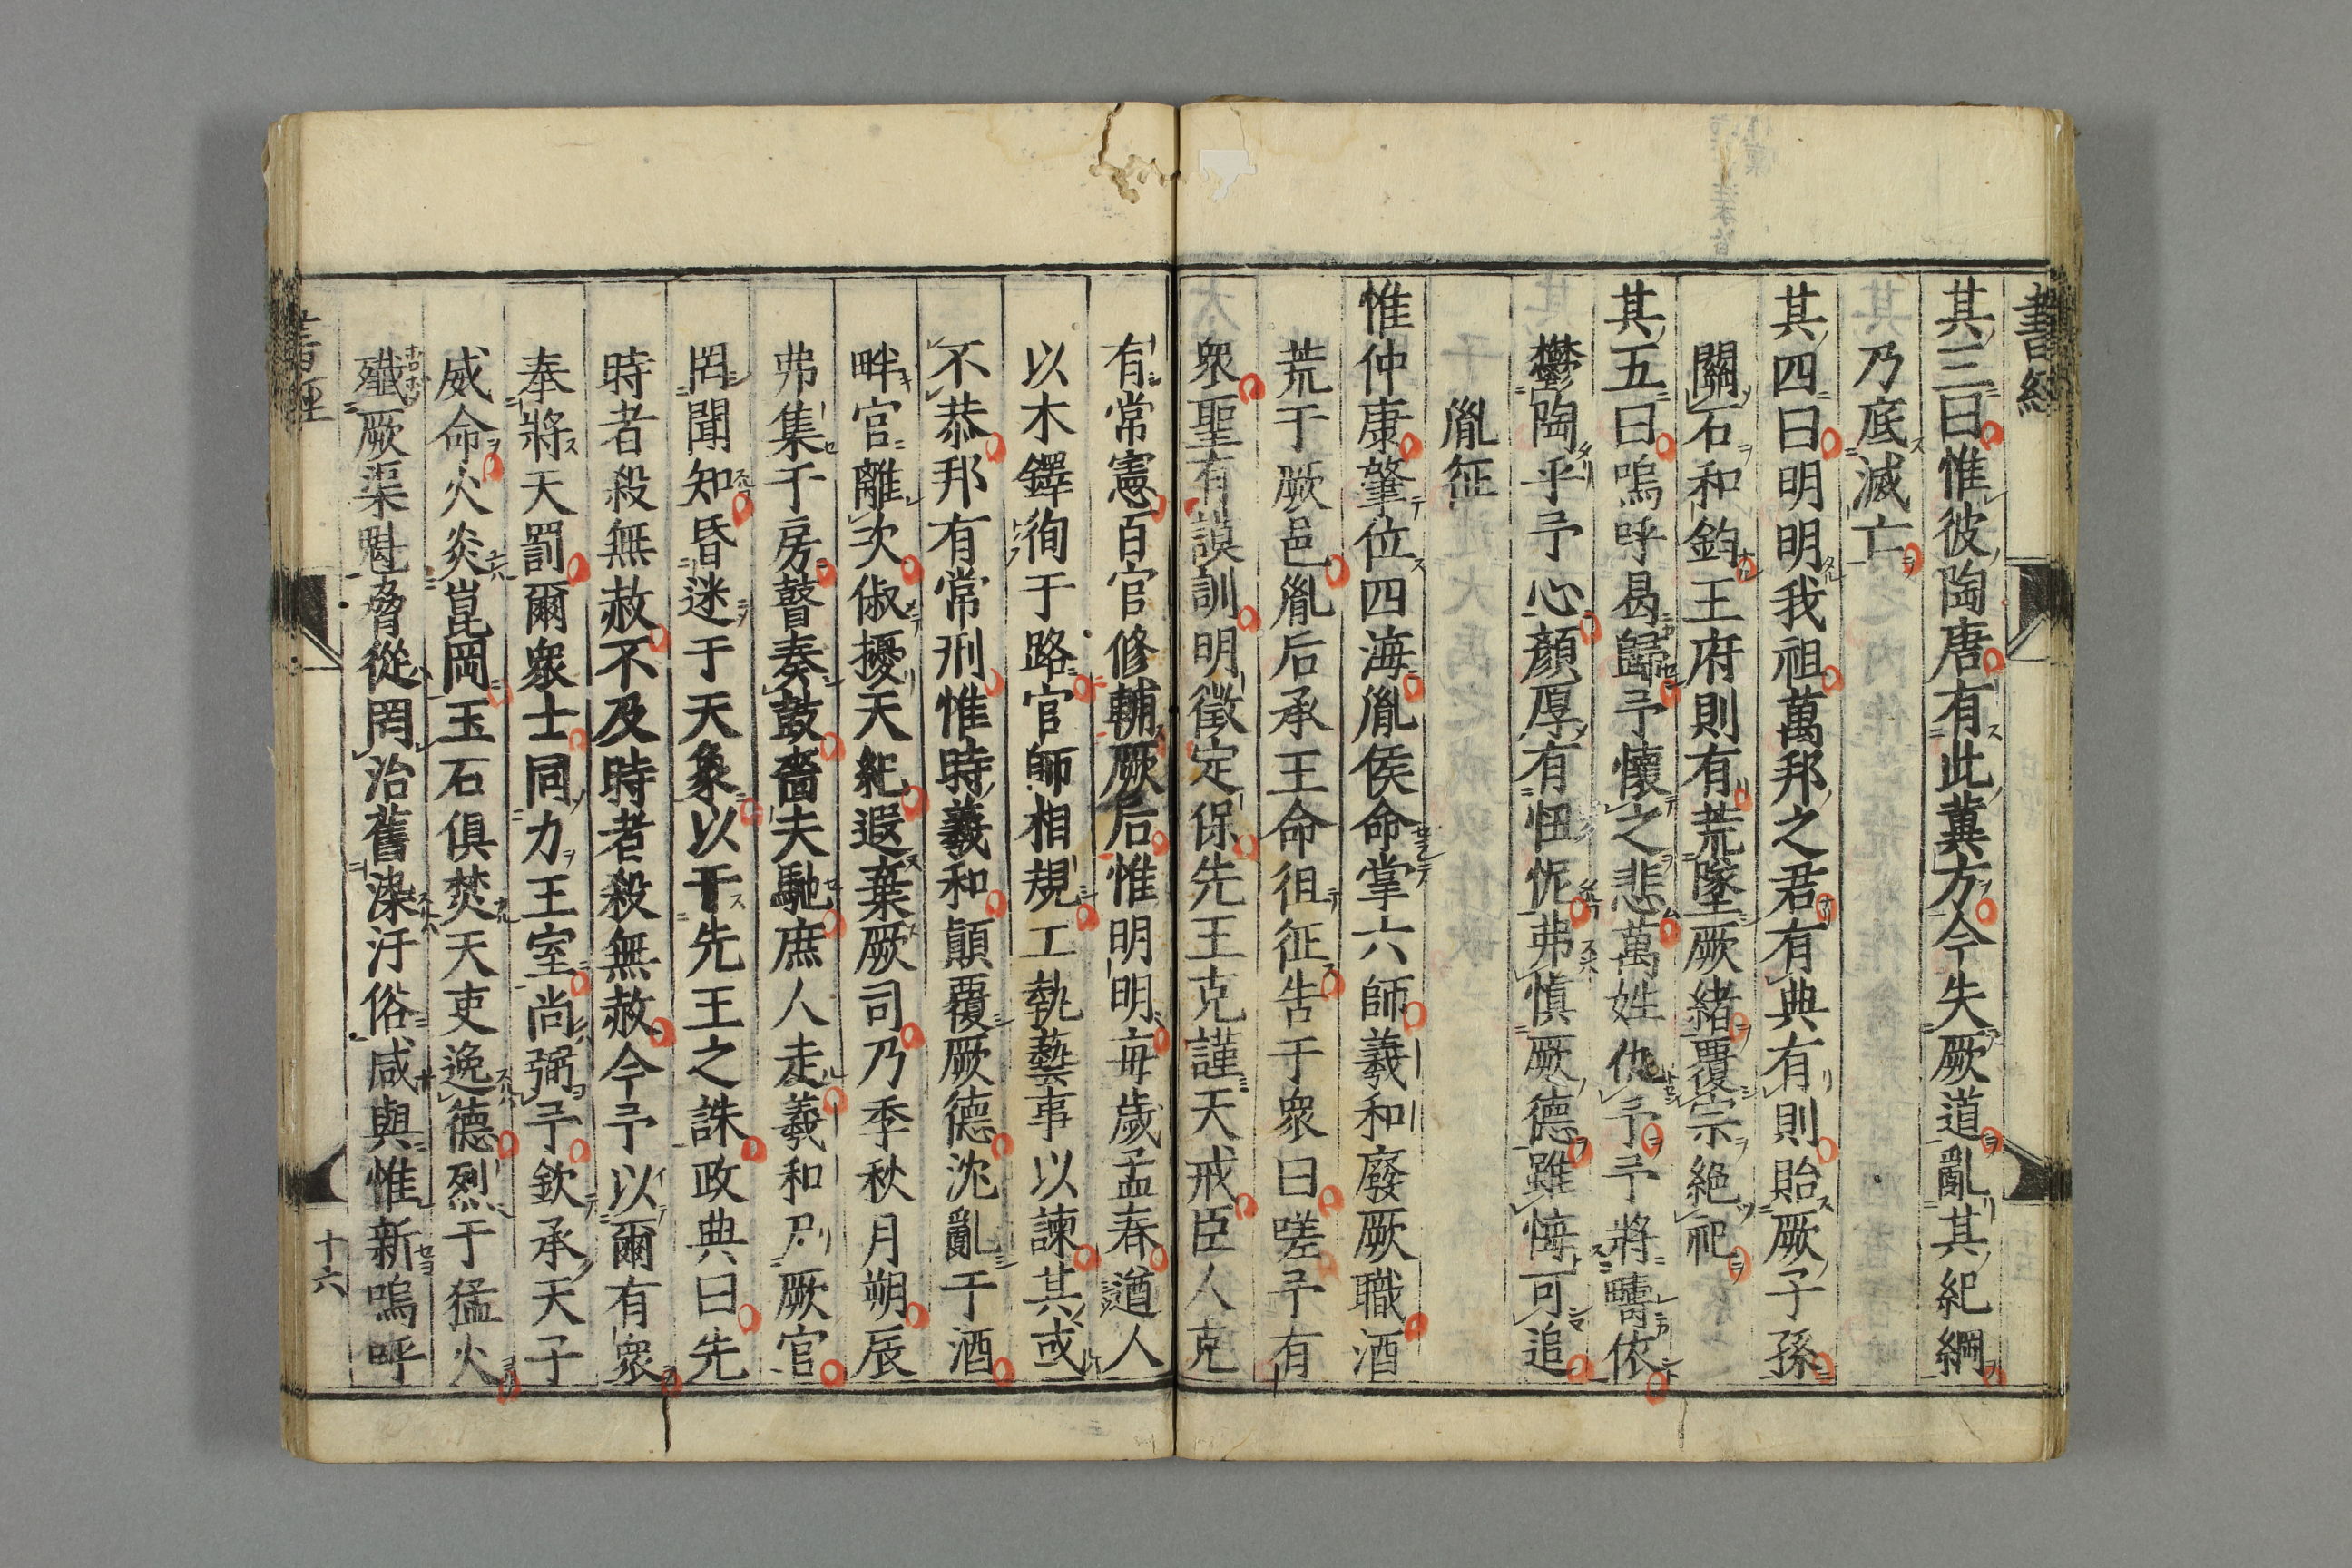 書經
其三曰惟彼陶唐有此冀方今失厥道亂其紀綱
乃底滅亡
其四曰明明我祖萬邦之君有典有則貽厥子孫
關石和鈞王府則有荒墜厥緒覆宗絶祀
其五曰嗚呼曷歸予懷之悲萬姓仇予予將疇依
鬱陶乎予心顏厚有忸怩弗愼厥德雖悔可追
胤征
惟仲康肇位四海胤侯命掌六師羲和廢厥職酒
荒于厥邑胤后承王命徂征告于衆曰嗟予有
衆聖有謨訓明徵定保先王克謹天戒臣人克
有常憲百官修輔厥后惟明明每歲孟春遒人
以木鐸徇于路官師相規工執藝事以諫其或
不恭邦有常刑惟時羲和顚覆厥德沈亂于酒
畔官離次俶擾天紀遐棄厥司乃季秋月朔辰
弗集于房瞽奏鼓嗇夫馳庶人走羲和尸厥官
罔聞知昏迷于天象以干先王之誅政典曰先
時者殺無赦不及時者殺無赦今予以爾有衆
奉將天罰爾衆士同力王室尚弼予欽承天子
威命火炎崑岡玉石俱焚天吏逸德烈于猛火
殲厥渠魁脅從罔治舊染汙俗咸與惟新嗚呼
書經
十六